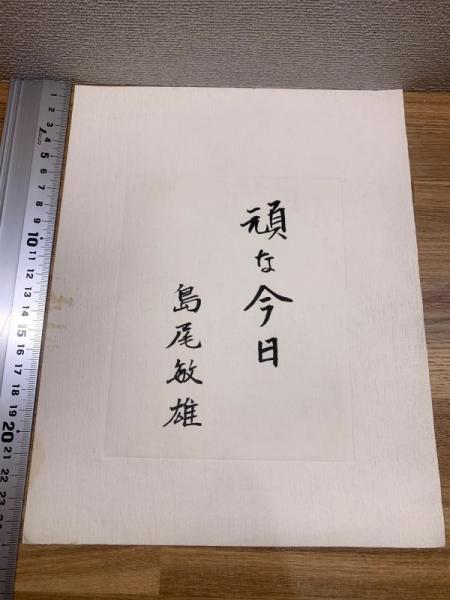 頑な今日
島尾敏雄
1
2
3
4
5
6
7
8
9
10
11
12
13
14
15
16
17
18
19
20
21
22
23